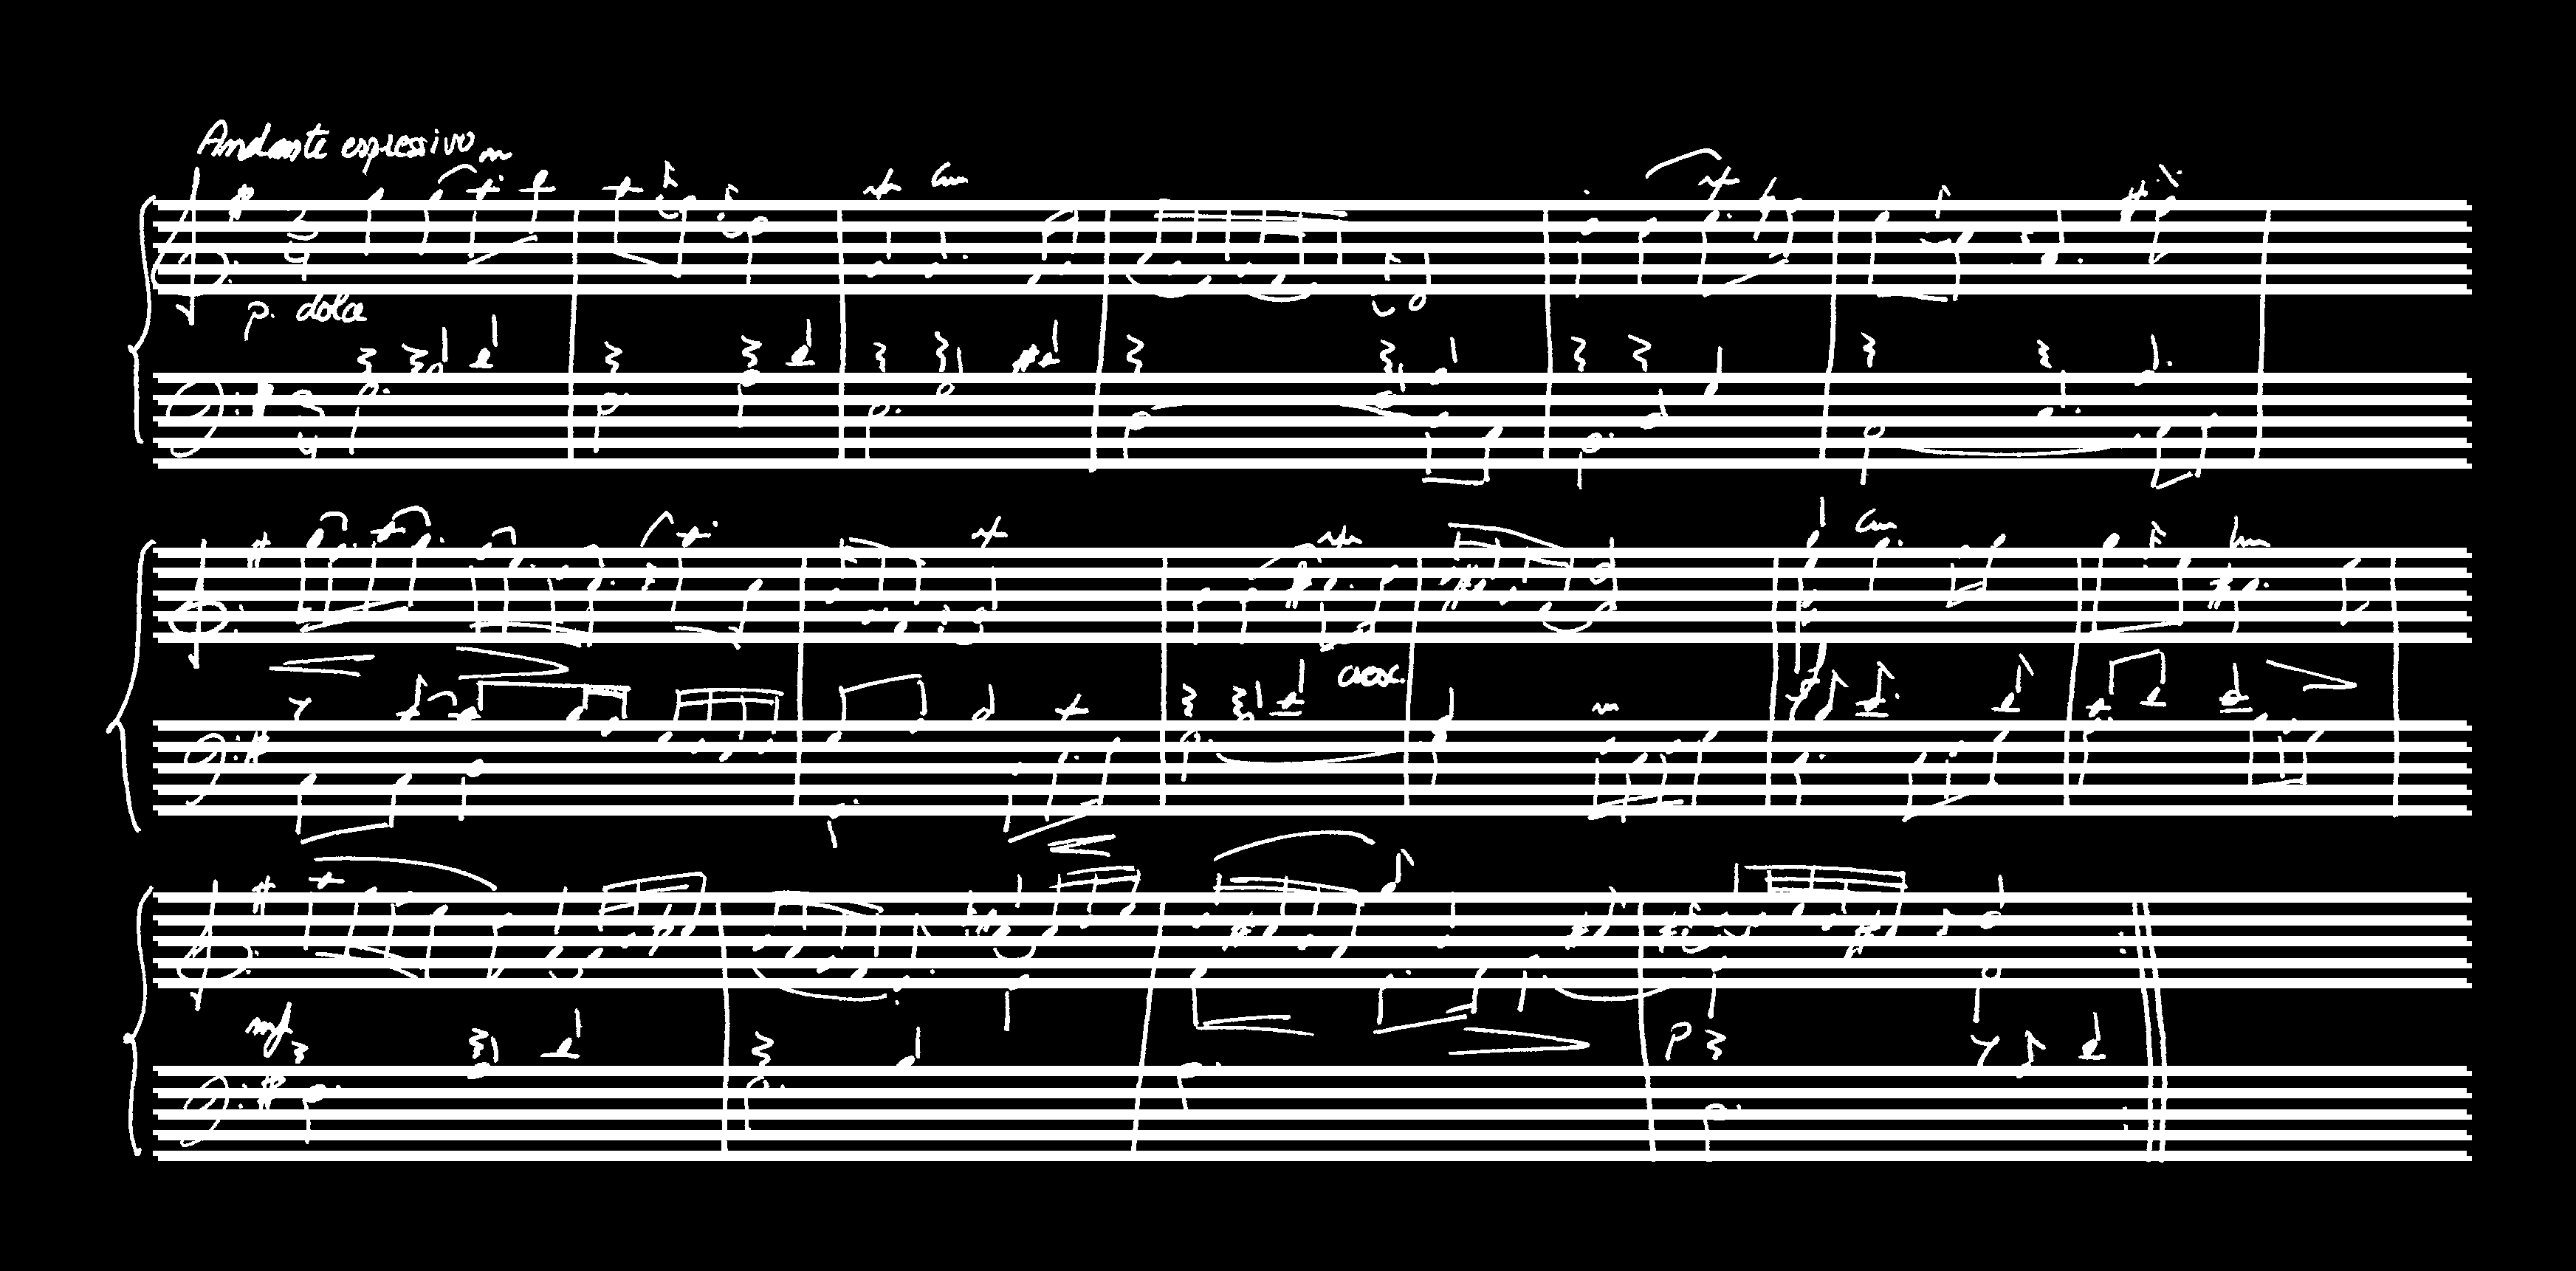 Andante espressivo
p. dolce
cresc.
f
mf
p